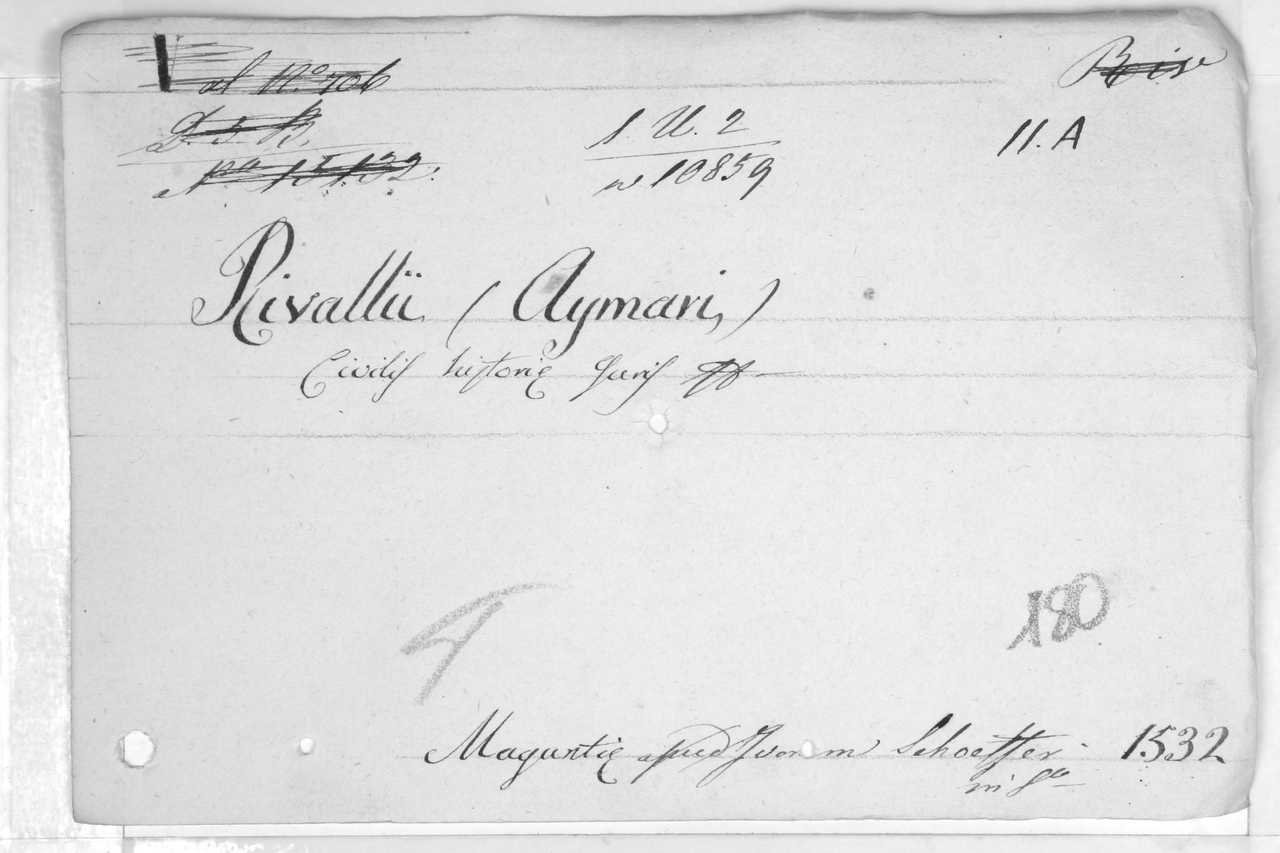 ad No. 706
11. A
1 U. 2
w 10859
Rivallii (Aymari,)
Civilis historie Juris
4
180
Maguntie apud Ivonem Schoeffer 1532
in 8o